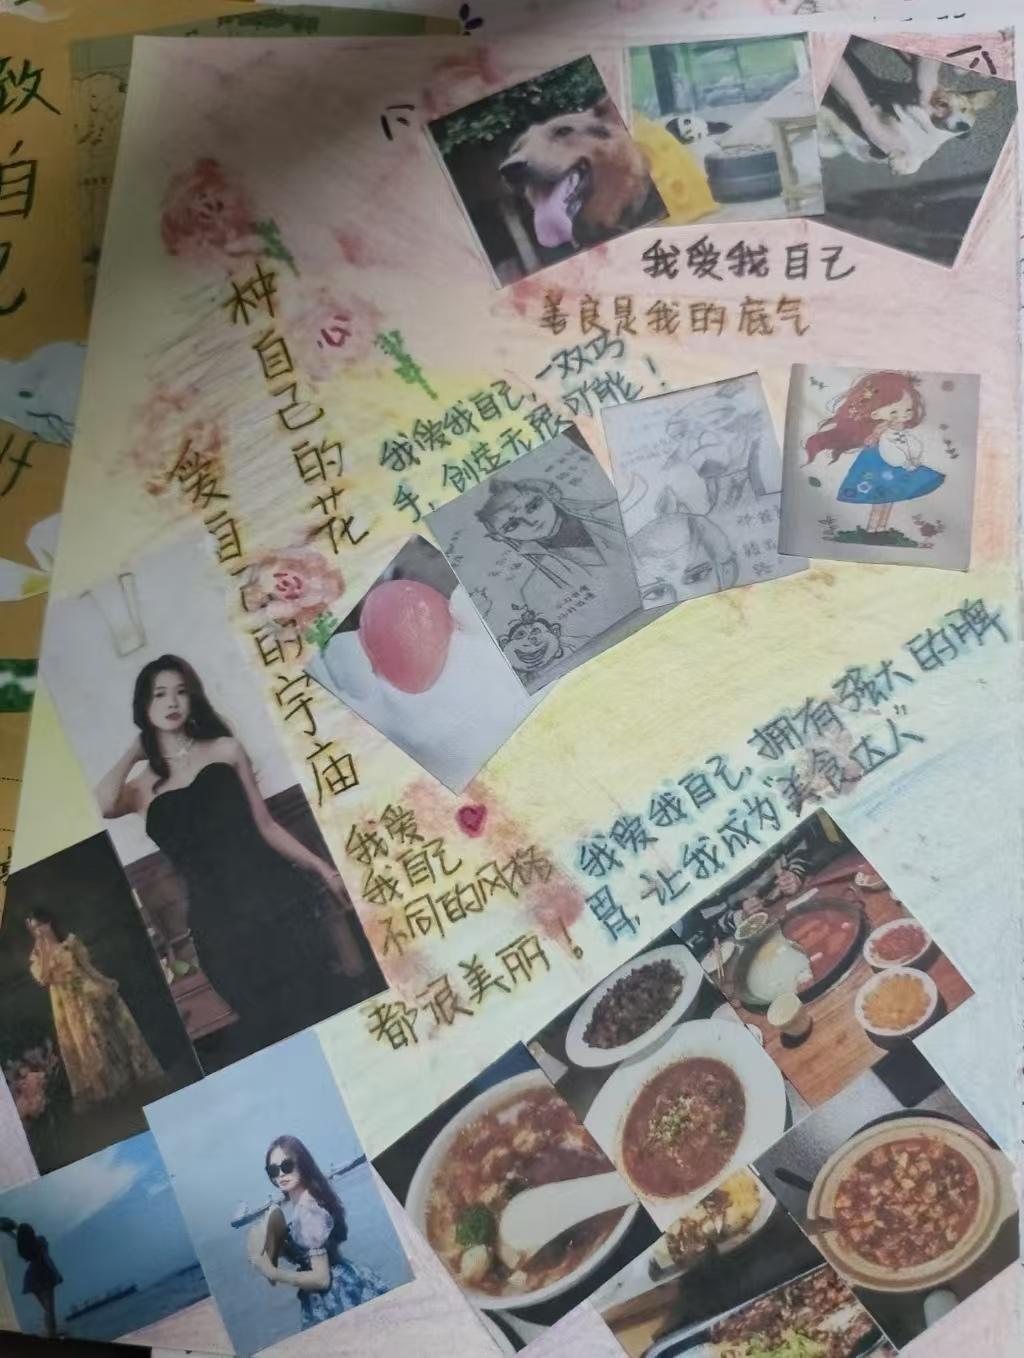 致自己
种自己的花
爱自己的宇庙
我爱我自己
善良是我的底气
我爱我自己,一双巧
手,创造无限可能!
我爱我自己,拥有强大的脾
胃,让我成为"美食达人"
我爱
我自己
不同的风格
都很美丽!